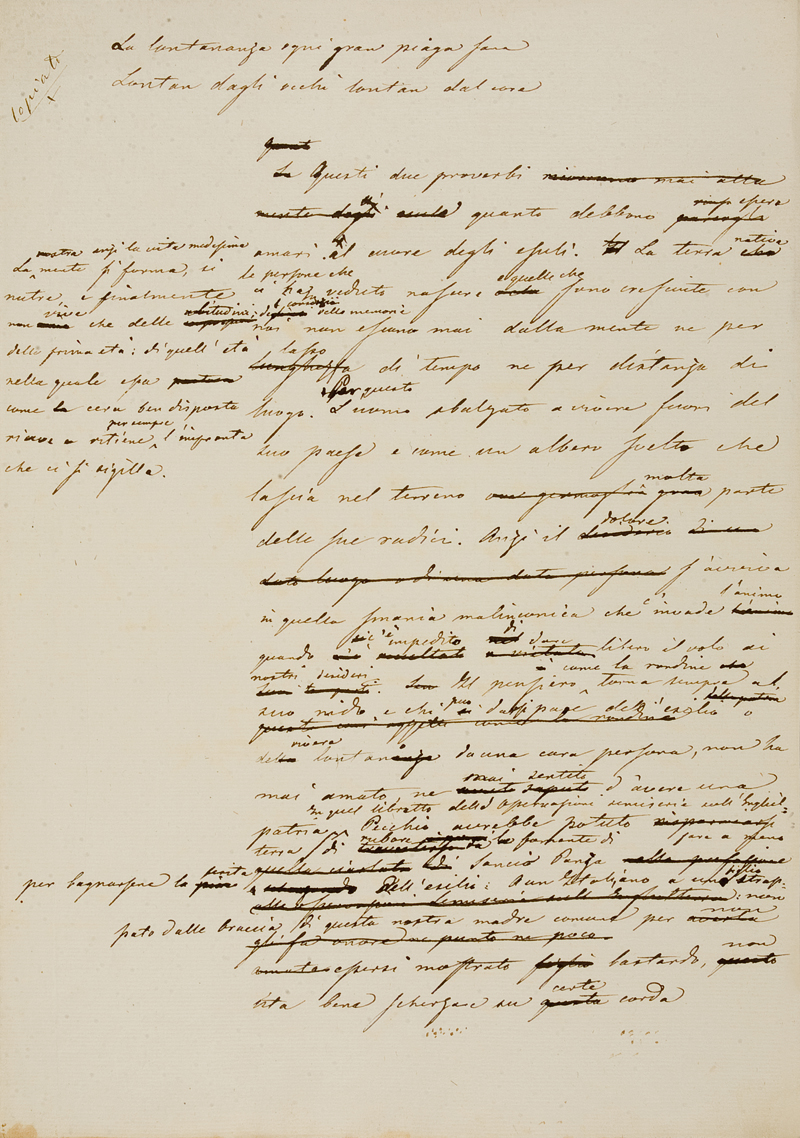 copiato
La lontananza ogni gran piaga sana
Lontan dagli occhi lontan dal core
Questi due proverbi rivorranno mai alla
mente degli quanto debbono essere
amari al cuore degli esuli. La terra nativa
le persone che
ci han veduto nascere e quelle che sono cresciute con
noi non escono mai dalla mente ne per
lasso di tempo ne per distanza di
luogo. Per questo L'uomo sbalzato a vivere fuori del
suo paese e come un albero svelto che
lascia nel terreno molta parte
delle sue radici. Anzi il dolore
dato luogo o di una data persona s'avvicina
in quella smania malinconica che c'invade l'animo
quando ci è impedito di dare libero il volo ai
nostri desideri. Il pensiero è come la rondine torna sempre al
suo nido e chi può darsi pace dell'esilio o
vivere lontan da una cara persona, non ha
mai amato ne mai sentito d'avere una
patria. In quel libretto delle Osservazioni semiserie sull'Inghil=
terra Pecchio avrebbe potuto fare a meno
di rubare le fomente di Sancio Panza
per bagnarsene la ferita dell'esilio: a un Italiano a un figlio strap=
pato dalle braccia di questa nostra madre comune per non
essersi mostrato bastardo, non
sta bene scherzare su certe corde
nostra anzi la vita medesima
La mente si forma, si
nutre, e finalmente
non vive che delle abitudini e delle memorie
della prima età: di quell'età
nella quale essa
come la cera ben disposta
riceve e ritiene per sempre l'impronta
che ci si sigilla.